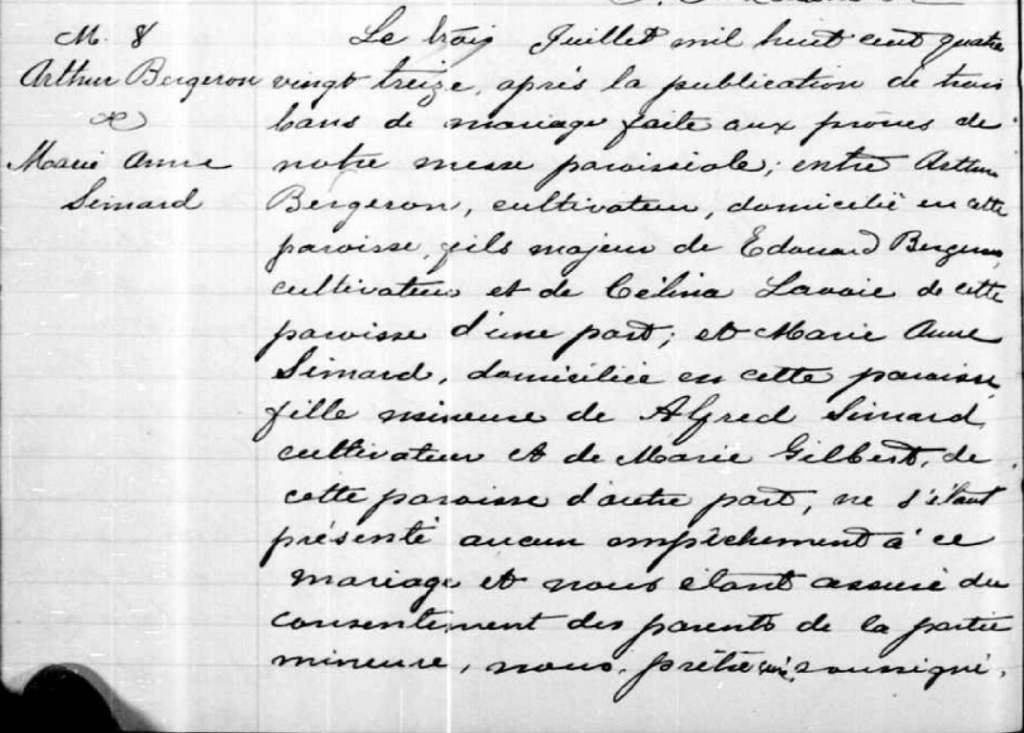 M. 8
Arthur Bergeron
&
Marie Anne
Simard
Le trois Juillet mil huit cent quatre
vingt treize, après la publication de trois
bans de mariage faite aux prônes de
notre messe paroissiale; entre Arthur
Bergeron, cultivateur, domicilié en cette
paroisse, fils majeur de Edouard Bergeron,
cultivateur et de Célina Lavoie de cette
paroisse d'une part; et Marie Anne
Simard, domiciliée en cette paroisse,
fille mineure de Alfred Simard,
cultivateur et de Marie Gilbert, de
cette paroisse d'autre part, ne s'étant
présenté aucun empêchement à ce
mariage et nous étant assuré du
consentement des parents de la partie
mineure, nous, prêtre curé soussigné,